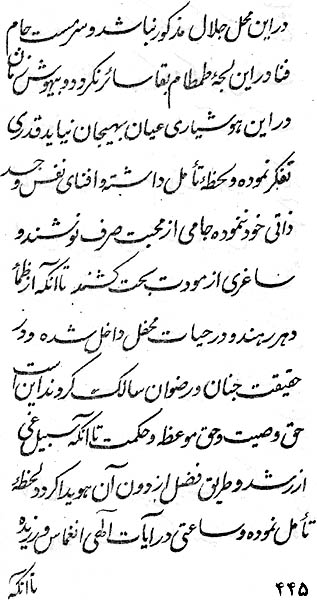 در این محل جلال مذکور نباشد و سرمست جام
فنا در این لجهٔ طمطام بقا سائر نکردد و بیهوش نتان
در این هوشیاری عیان بهیجان نیاید قدری
تفکر نموده و لحظهٔ تأمل داشته و افنای نفس و جسد
ذاتی خود نموده جامی از محبت صرف نوشند و
ساغری از مودت بحت کشند تا آنکه از ظمأ
دهر رهند و در حیات محفل داخل شده و در
حقیقت جنان و رضوان سالک کردند این است
حق وصیت و حق موعظه و حکمت تا آنکه سبیل غی
از رشد و طریق فضل از دون آن هویدا کردد لحظهٔ
تأمل نموده و ساعتی در آیات الهی انغماس ورزیده
تا آنکه
۴۴۵